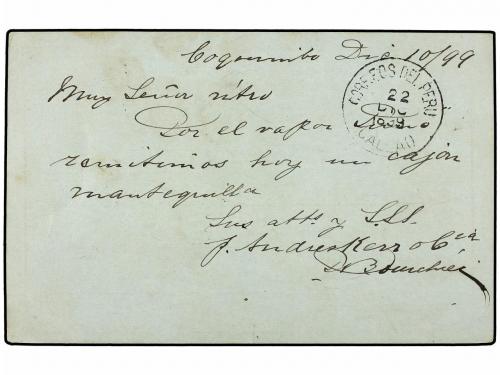 Coquimbo Dic 10/99
Muy Señor ntro
CORREOS DEL PERU
22
DIC
1899
CALLAO
Por el vapor
remitimos hoy un cajón
mantequilla
Sus atts y S.S.S.
J. Andres Kerr & Cia